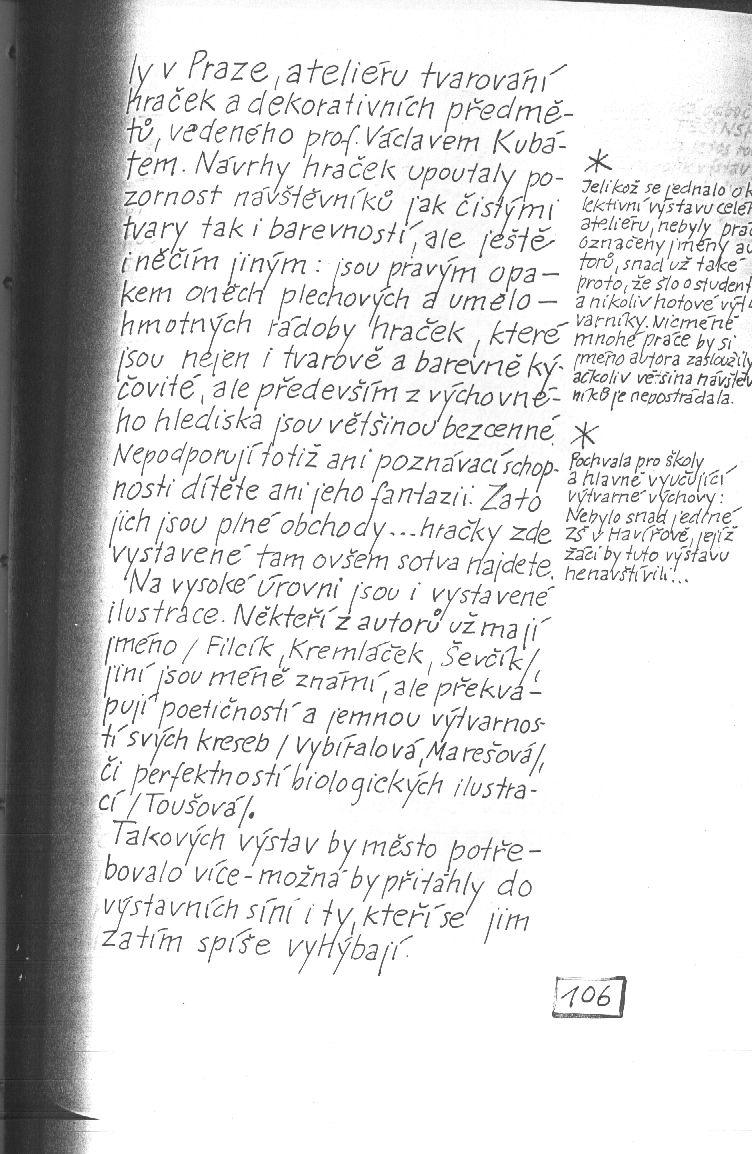 ly v Praze, atelieru tvarování
hraček a dekorativních předmě-
tů, vedeného prof. Václavem Kubá-
tem. Návrhy hraček upoutaly po-
zornost návštěvníků jak čistými
tvary tak i barevností, ale ještě
i něčím jiným: jsou pravým opa-
kem oněch plechových a umělo-
hmotných rádoby hraček, které
jsou nejen i tvarově a barevně ký-
čovité, ale především z výchovné-
ho hlediska jsou většinou bezcenné.
Nepodporují totiž ani poznávací schop-
nosti dítěte ani jeho fantazii. Zato
jich jsou plné obchody...hračky zde
vystavené tam ovšem sotva najdete.
Na vysoké úrovni jsou i vystavené
ilustrace. Někteří z autorů už mají
jméno / Filcík, Kremláček, Ševčík/,
jiní jsou méně známí, ale překva-
pují poetičností a jemnou výtvarnos-
tí svých kreseb / Vybíralová, Marešová/,
či perfektností biologických ilustra-
cí /Toušová/.
Takových výstav by město potře-
bovalo více - možná by přitáhly do
výstavních síní i ty, kteří se jim
zatím spíše vyhýbají.
*
Jelikož se jednalo o k
lektivní výstavu celé
atelieru, nebyly prá
označeny jmény au
torů, snad už také
proto, že šlo o student
a nikoliv hotové výt
varníky. Nicméně
mnohé práce by si
jméno autora zasloužily
ačkoliv většina návštěv
níků je nepostrádala.
*
Pochvala pro školy
a hlavně vyučující
výtvarné výchovy:
Nebylo snad jediné
ZŠ v Havířově, jejíž
žáci by tuto výstavu
nenavštívili...
106